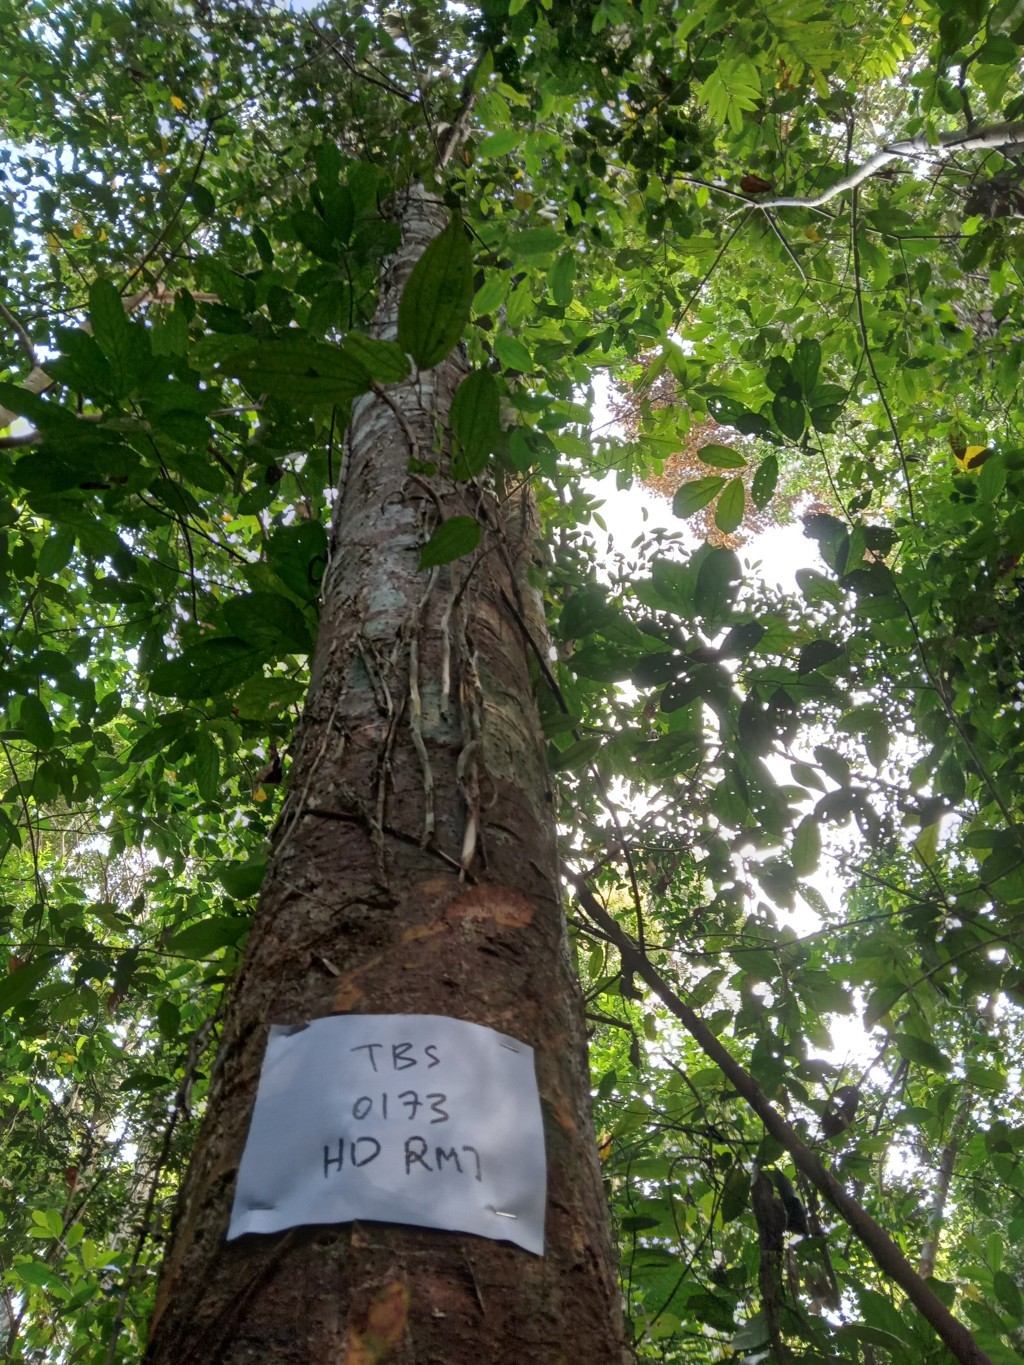 TBS
0173
HD RM7